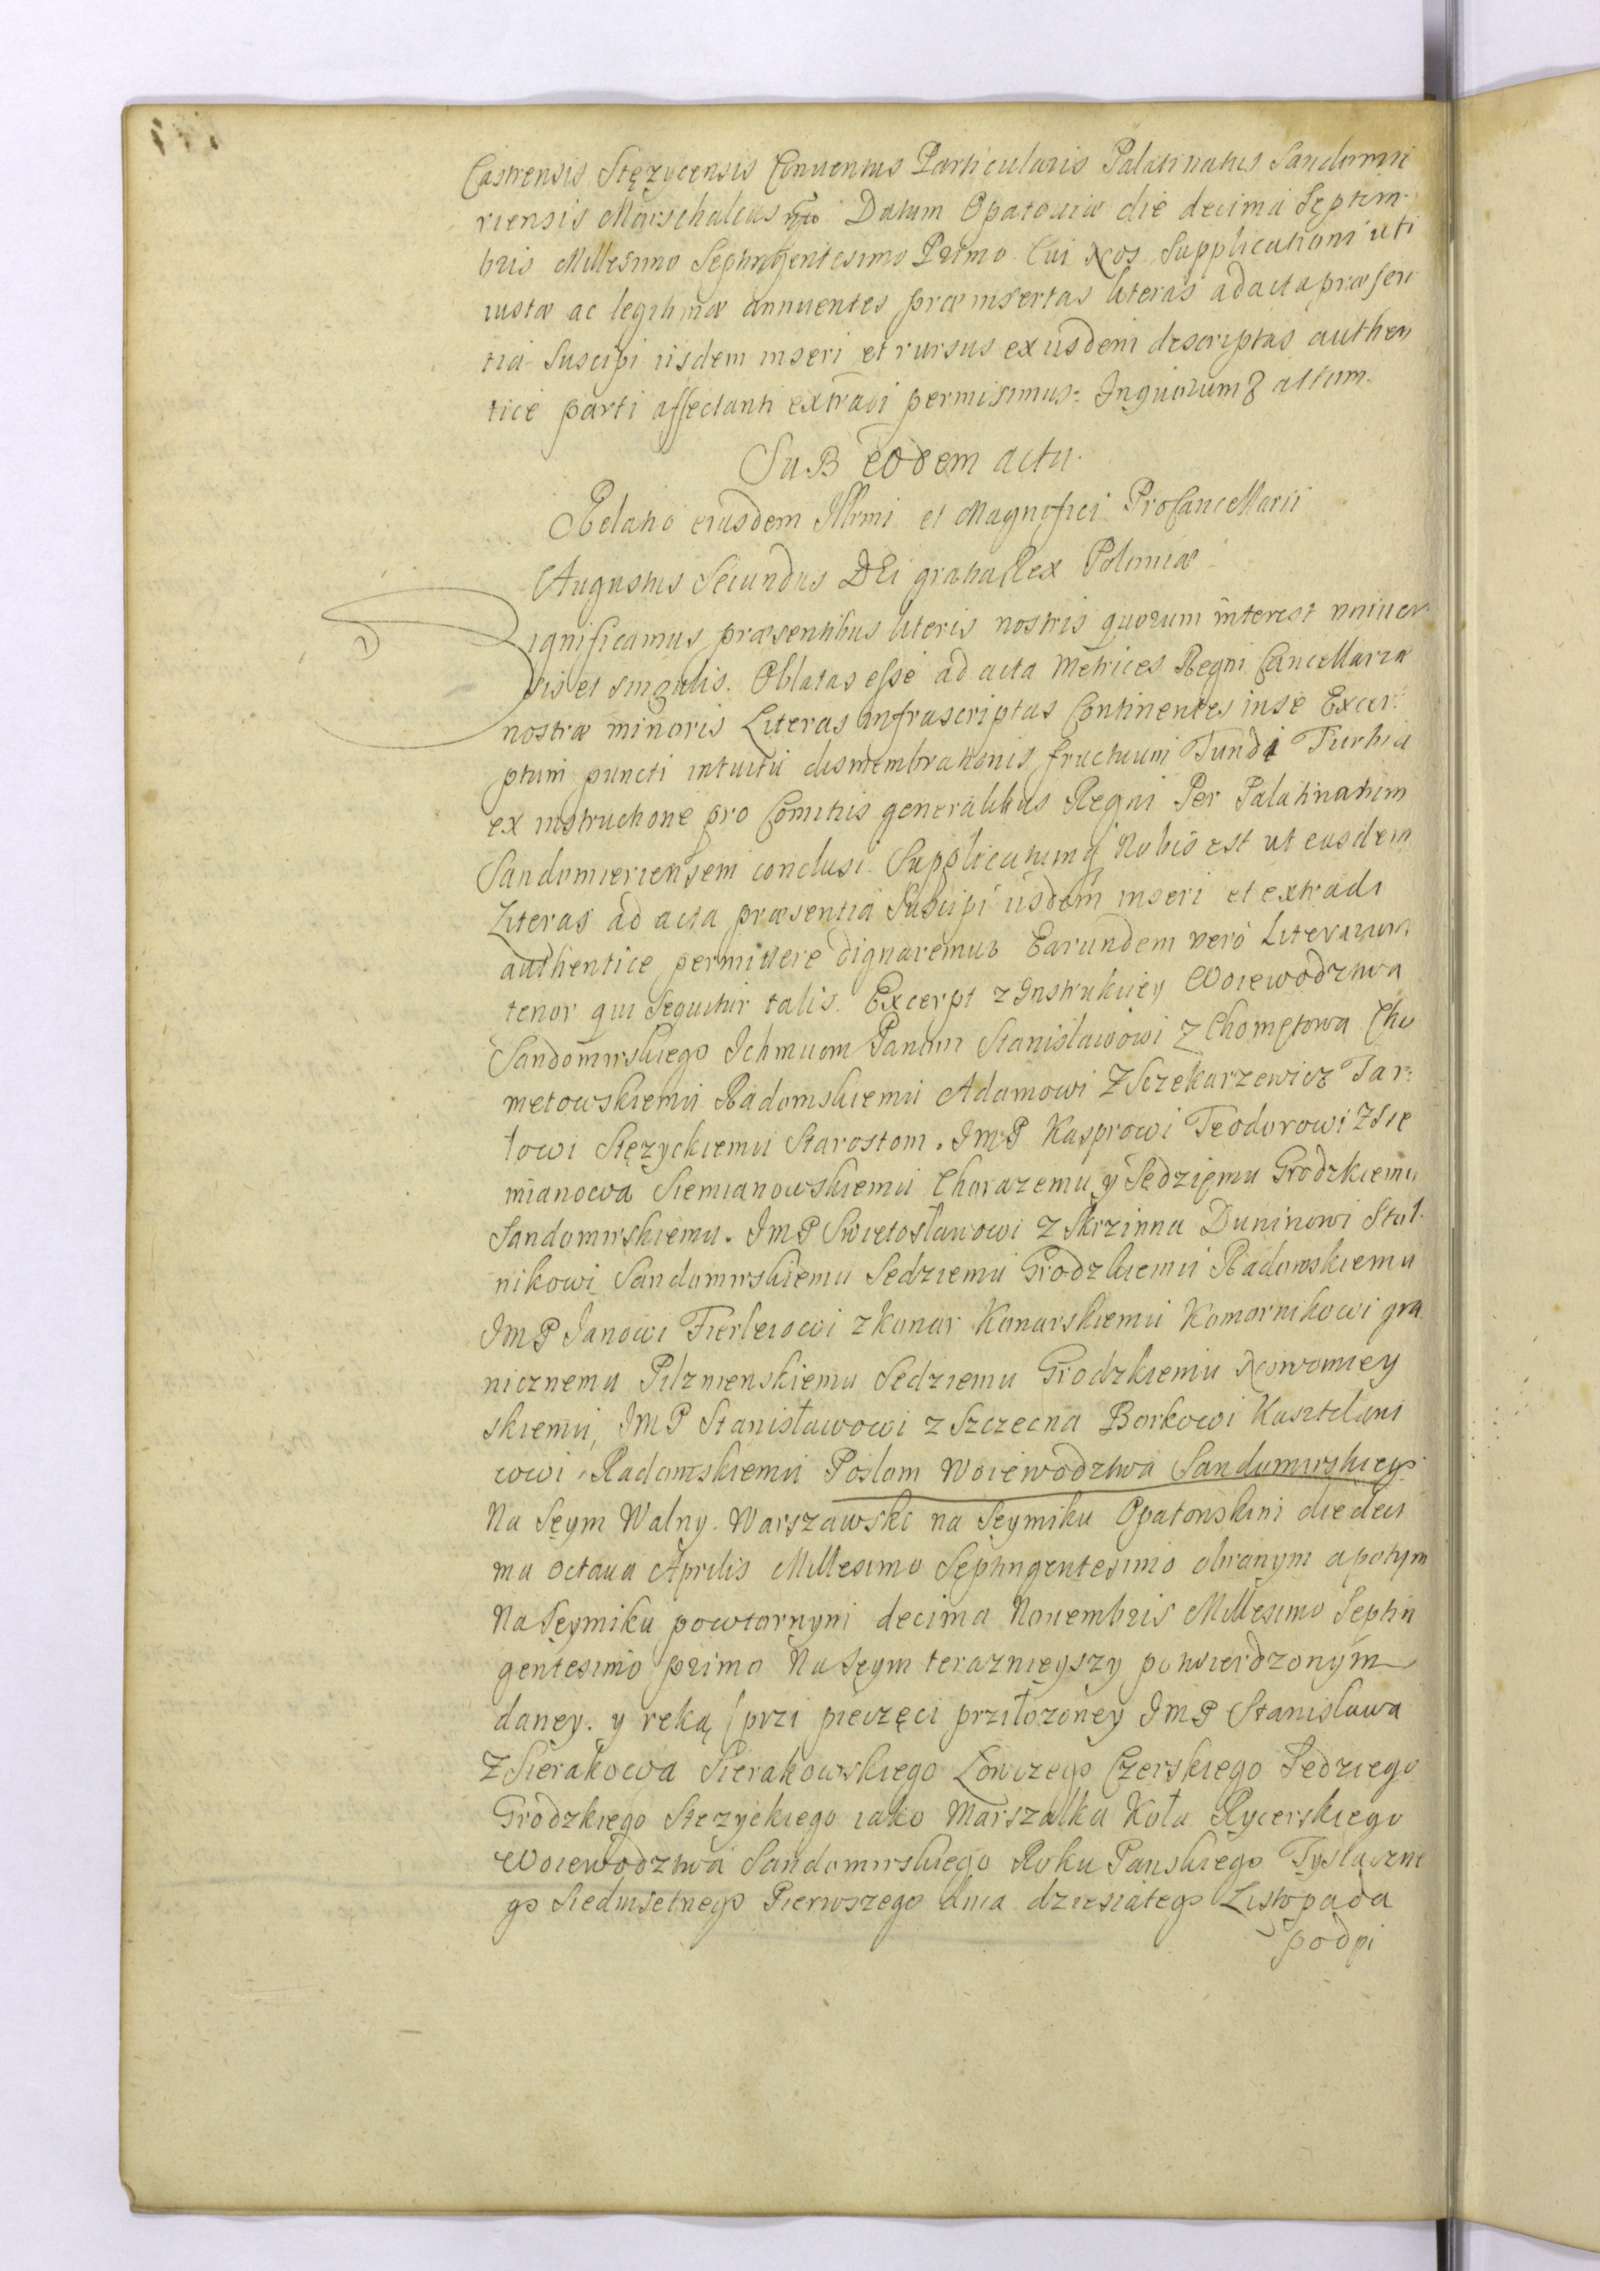 Castrensis Stęzycensis Conventus Particularis Palatinatus Sandomi
riensis Marschalcus mp Datum Opatoviæ die decima Septem-
bris Millesimo Septingentesimo Primo. Cui Nos Supplicationi uti
iustæ ac legitimæ annuentes præinsertas literas ad acta præsen
tia Suscipi iisdem inseri et rursus ex iisdem descriptas authen
tice parti affectanti extradi permisimus: Inquorum altum.
SuB eodem actu.
Relatio eiusdem Illrmi et Magnifici ProCancellarii
Augustus Secundus DEi gratia Rex Poloniæ
Significamus præsentibus literis nostris quorum interest univer
sis et singulis. Oblatas esse ad acta Metrices Regni Cancellariæ
nostræ minoris Literas infrascriptas Continentes in se Excer:
ptum puncti intuitu dismembrationis fructuum Fundi Turbia
ex instructione pro Comitiis generalibus Regni Per Palatinatum
Sandomieriensem conclusi. Supplicatumq Nobis est ut easdem
Literas ad acta præsentia Suscipi iisdem inseri et extradi
authentice permittere dignaremur Earundem vero Literarum
tenor qui Sequitur talis. Excerpt z Instrukcyey Woiewodztwa
Sandomirskiego Ichmuom Panom Stanisławowi z Chomętowa Cho
metowskiemu Radomskiemu Adamowi Z Sczekarzewicz Tar:
łowi Stęzyckiemu Starostom. ImP Kasprowi Teodorowi Z Sie
mianowa Siemianowskiemu Chorazemu y Sędziemu Grodzkiemu
Sandomirskiemu. ImP Swietosławowi z Skrzinna Duninowi Stol-
nikowi Sandomirskiemu Sedziemu Grodzkiemu Radomskiemu
ImP Janowi Fierleiowi z Konar Konarskiemu Komornikowi gra
nicznemu Pilznienskiemu Sedziemu Grodzkiemu Nowomiey
skiemu, ImP Stanisławowi z Szczecna Borkowi Kasztelani
cowi Radomskiemu Posłom Woiewodztwa Sandomirskiego
Na Seym Walny Warszawski na Seymiku Opatowskim die deci
ma octava Aprilis Millesimo Septingentesimo obranym a potym
Na Seymiku powtornym decima Novembris Millesimo Septin
gentesimo primo Na Seym teraznieyszy potwierdzonym
daney. y ręką przi pieczęci przilozoney ImP Stanisława
Z Sierakowa Sierakowskiego Łowczego Czerskiego Sedziego
Grodzkiego Stezyckiego iako Marszałka Koła Rycerskiego
Woiewodztwa Sandomirskiego Roku Panskiego Tysiączne
go Siedmsetnego Pierwszego dnia dziesiątego Listopada
podpi